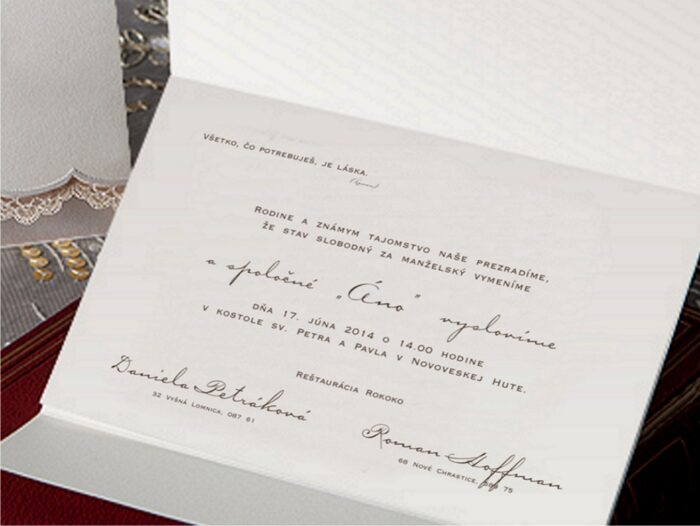 Všetko, čo potrebuješ, je láska.
Rodine a známym tajomstvo naše prezradíme,
že stav slobodný za manželský vymeníme
a spoločné „Áno" vyslovíme
dňa 17. júna 2014 o 14.00 hodine
v kostole sv. Petra a Pavla v Novoveskej Hute.
Reštaurácia Rokoko
Daniela Petráková
32 Vyšná Lomnica, 087 61
Roman Hoffman
68 Nové Chrastice, 75